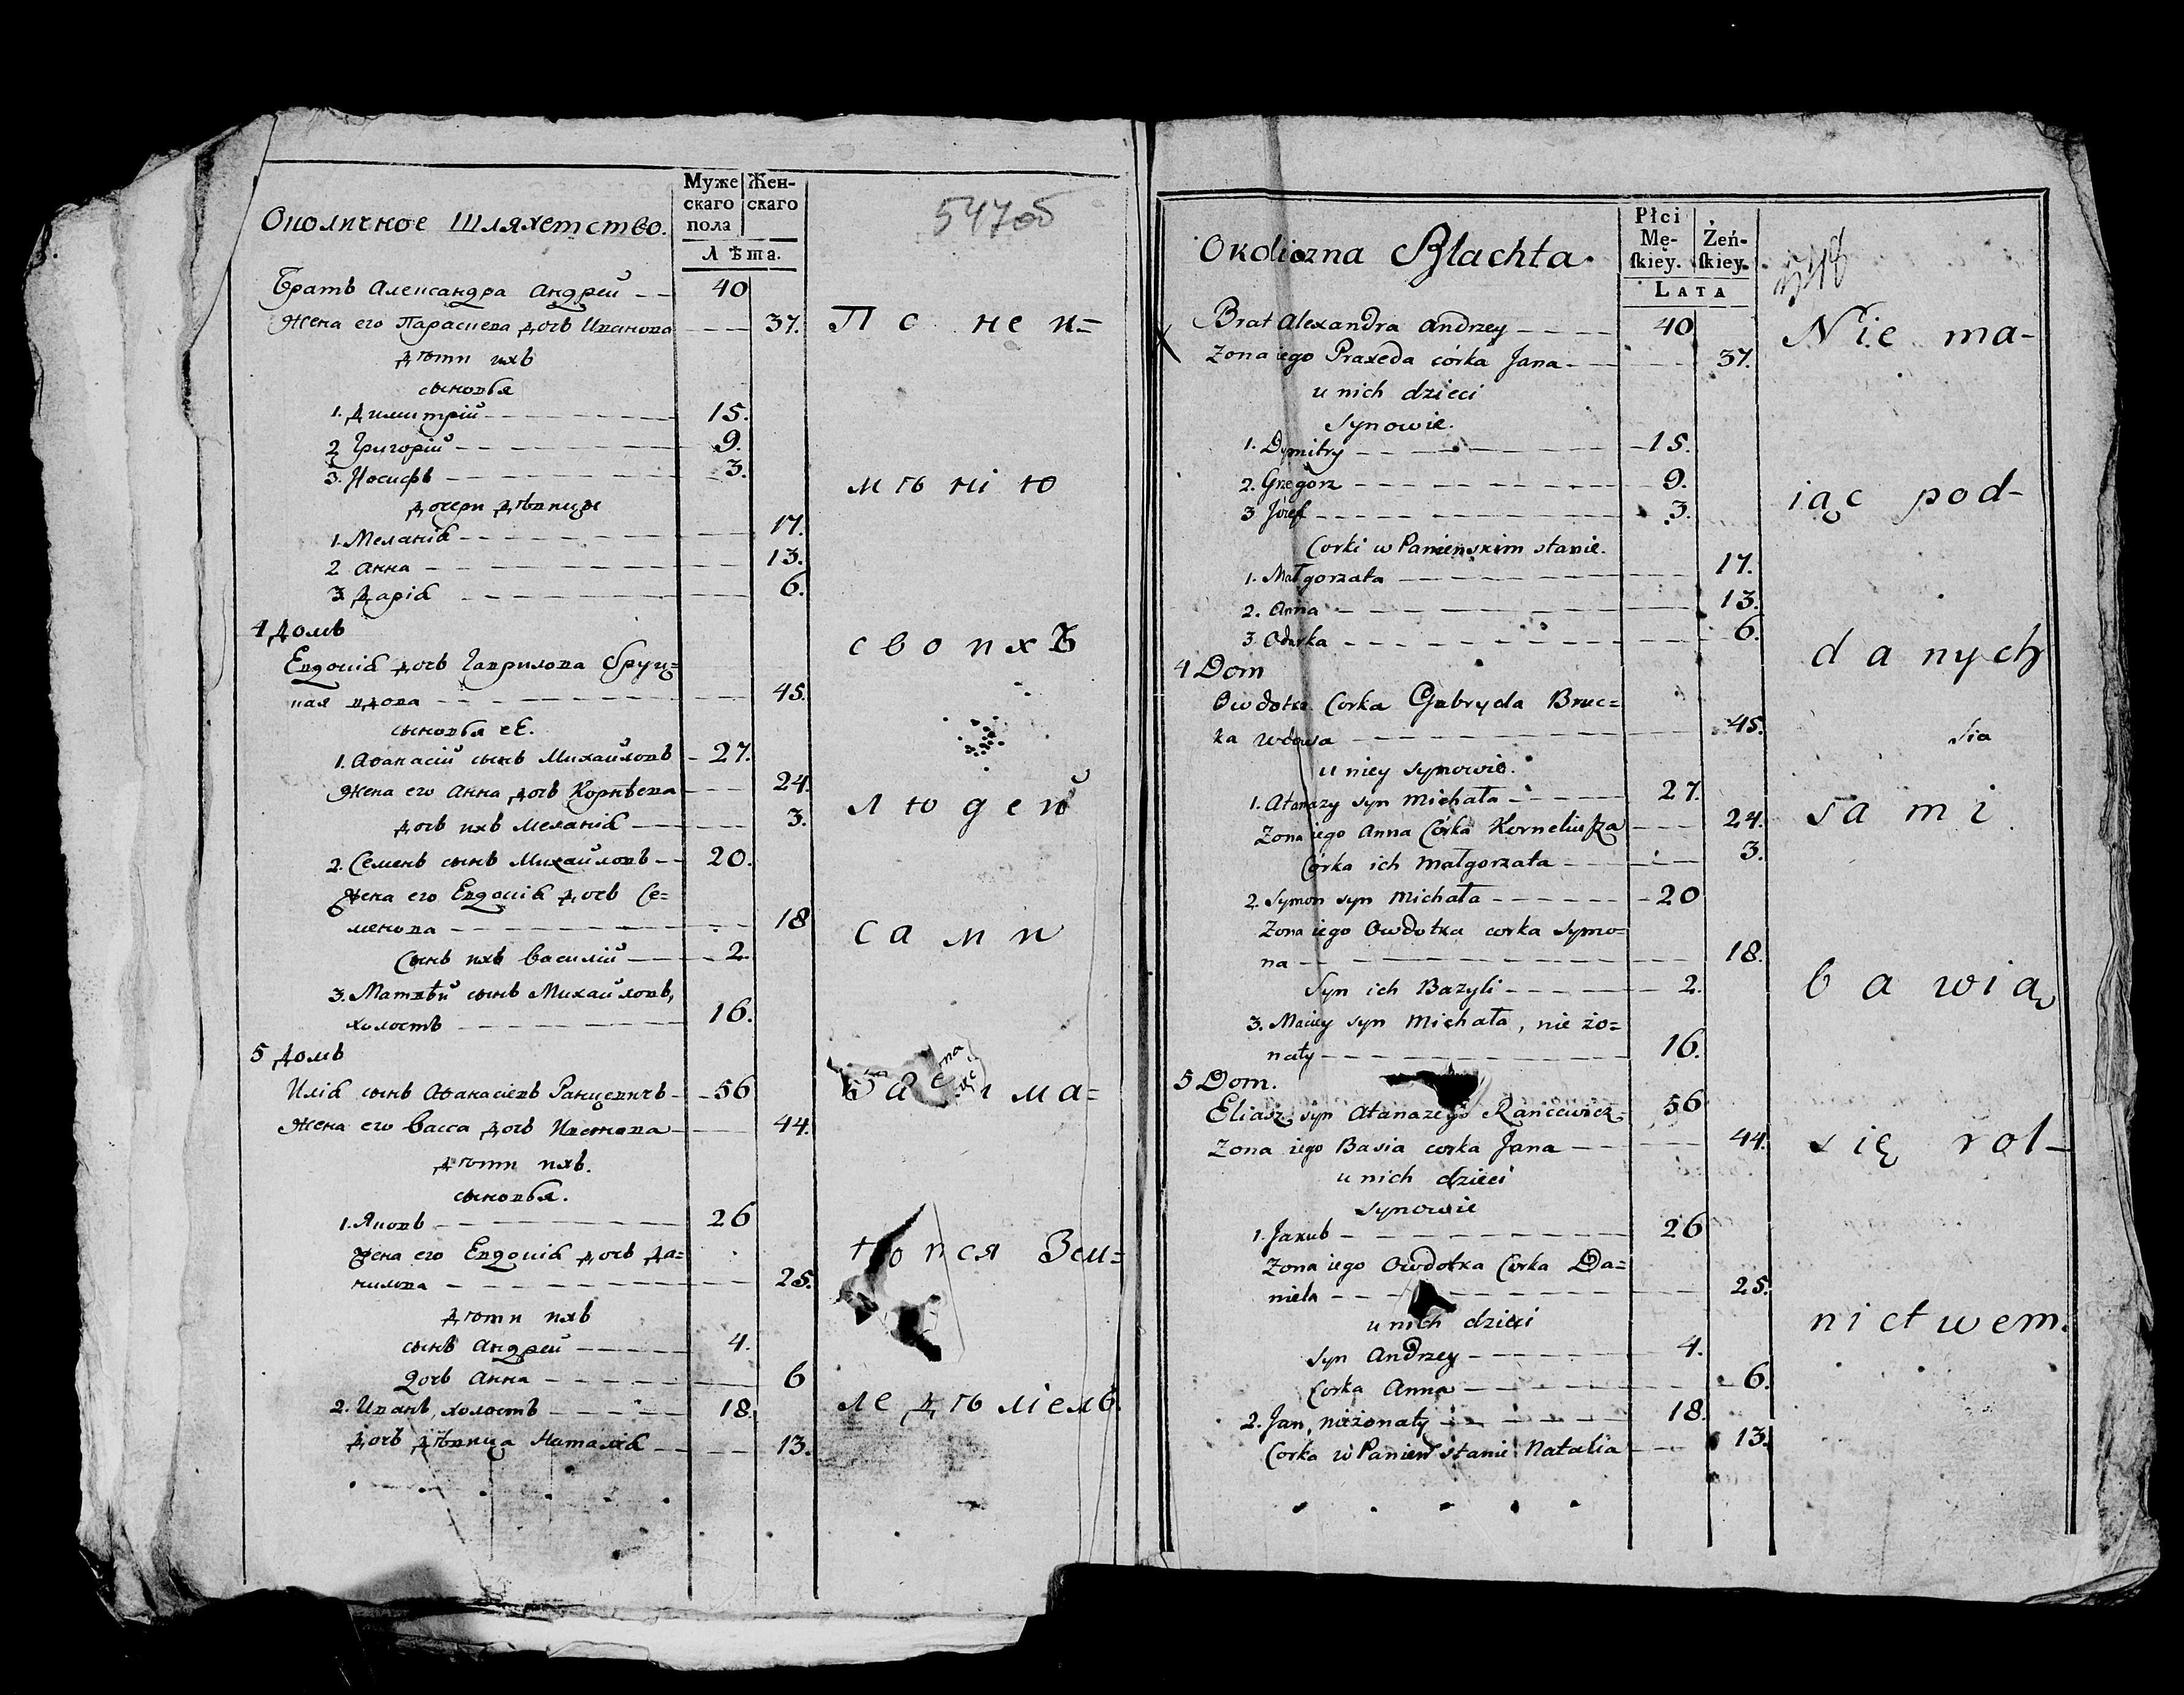 Околичное Шляхетство.
Муже
скаго
пола
Жен-
скаго
Лѣта.
547 об
Братъ Александра Андрей — 40
Жена его Параскева дочь Иванова — 37.
дѣти ихъ
сыновья
1. Димитрій — 15.
2 Григорій — 9.
3. Иосифъ — 3.
дочери дѣвицы
1. Меланія — 17.
2 Анна — 13.
3 Дарія — 6.
4 домъ
Евдокія дочь Гаврилова Бруц=
кая вдова — 45.
сыновья еЕ.
1. Афанасій сынъ Михайловъ — 27.
Жена его Анна дочь Корнѣева — 24.
дочь ихъ Меланія — 3.
2. Семенъ сынъ Михайловъ — 20.
Жена его Евдокія дочь Се=
менова — 18
Сынъ ихъ Василій — 2.
3. Матвѣй сынъ Михайловъ,
холостъ — 16.
5 домъ
Илія сынъ Афанасіевъ Ранцевичъ — 56
Жена его Васса дочь Иванова — 44.
дѣти ихъ.
сыновья.
1. Яковъ — 26
Жена его Евдокія дочь Да=
нилова — 25.
дѣти ихъ
сынъ Андрей — 4.
Дочь Анна — 6
2. Иванъ, холостъ — 18.
дочь дѣвица Наталія — 13.
По неи=
мѣнію
своихъ
людей
сами
ма=
ются Зем=
ледѣліемъ.
Okoliczna Szlachta.
Płci
Mę-
skiey.
Żeń-
skiey.
Lata
548
X
Brat Alexandra Andrzey — 40
Zona iego Praxeda córka Jana — 37.
u nich dzieci
Synowie.
1. Dymitry — 15.
2. Grzegorz — 9.
3 Józef — 3.
Corki w Panienskim stanie.
1. Małgorzata — 17.
2. Anna — 13.
3. Odarka — 6.
4 Dom
Owdotia Corka Gabryela Bruc=
ka wdowa — 45.
u niey synowie.
1. Atanazy syn Michała — 27.
Zona iego Anna Córka Korneliusza — 24.
Córka ich Małgorzata — 3.
2. Symon syn Michała — 20
Zona iego Owdotka corka Symo=
na — 18.
Syn ich Bazyli — 2.
3. Maciey syn Michała, nie żo=
naty — 16.
5 Dom.
Eliasz syn Atanazego Rancewicz — 56
Zona iego Basia corka Jana — 44.
u nich dzieci
synowie
1. Jakub — 26
Zona iego Owdotka Corka Da=
niela — 25.
u nich dzieci
Syn Andrzey — 4.
Corka Anna — 6.
2. Jan, nieżonaty — 18.
Corka w Panień stanie Natalia — 13.
Nie ma-
iąc pod-
danych
sia
sami
bawią
się rol-
nictwem.